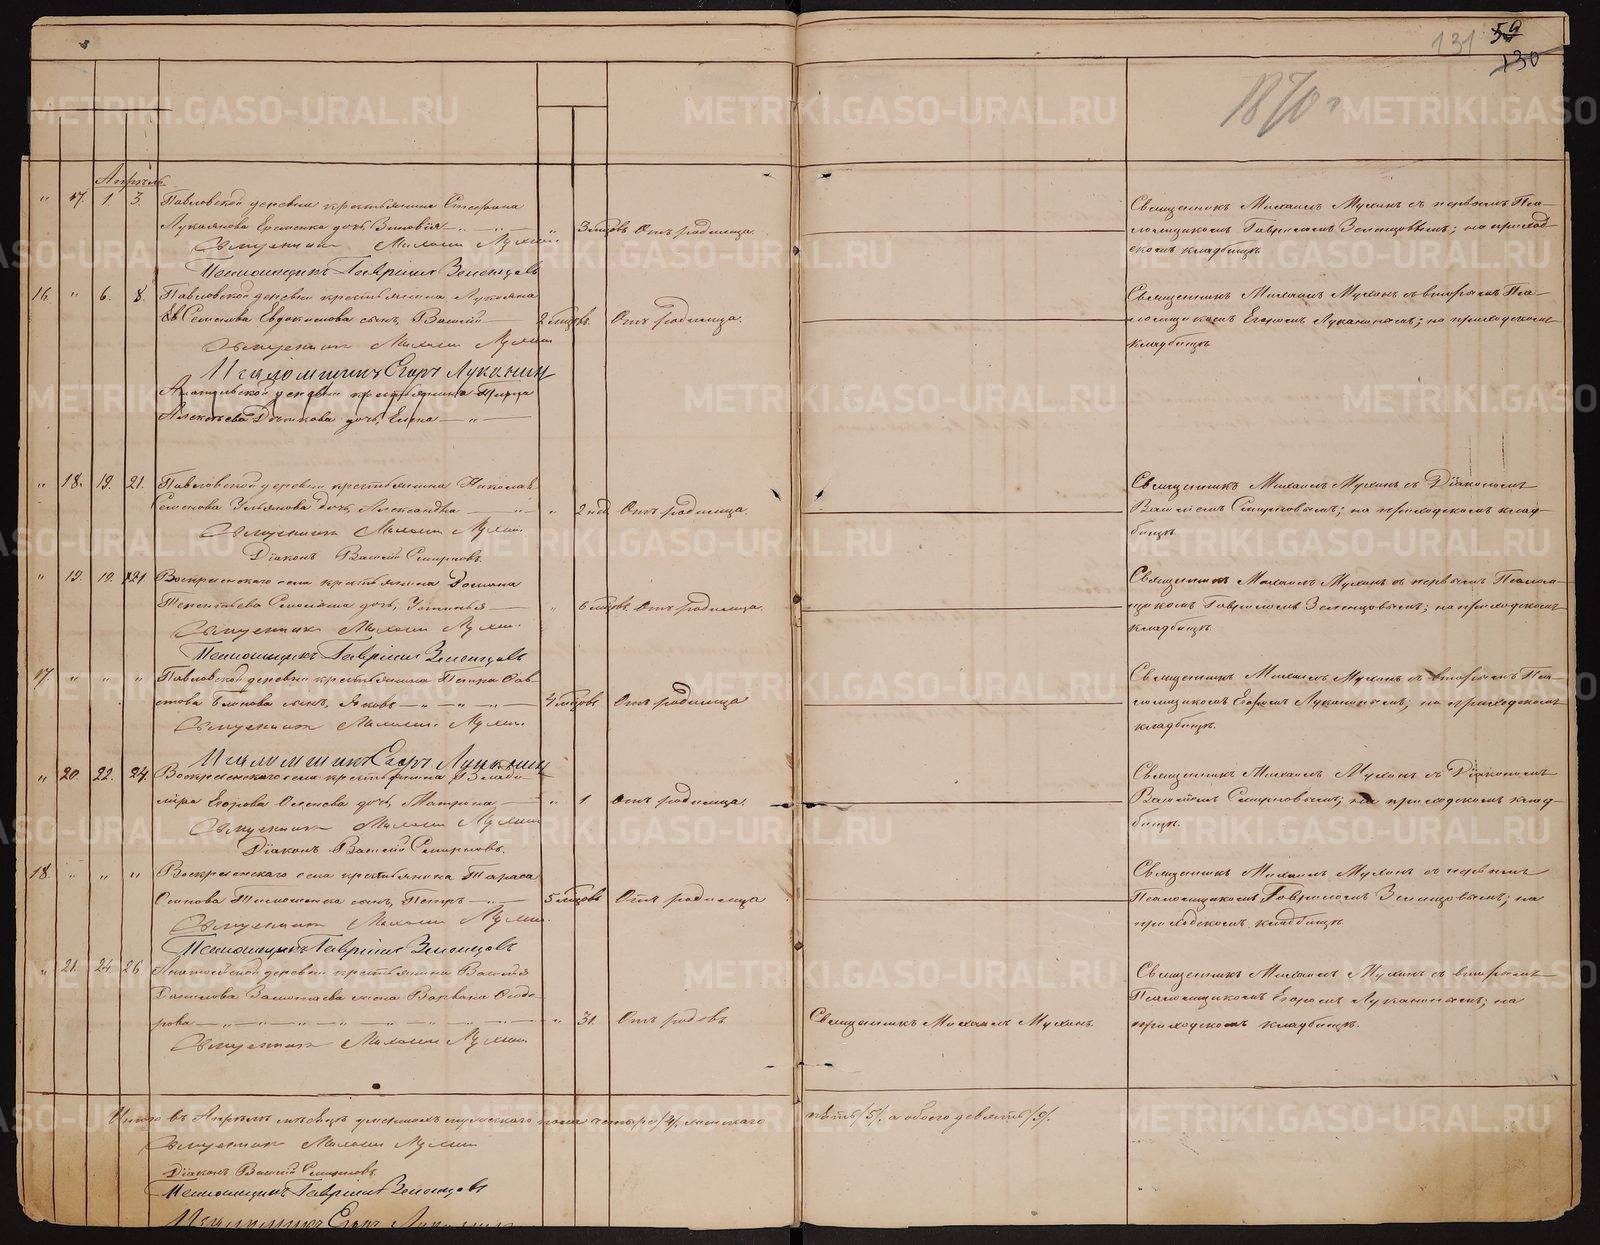 131 59
130
1870 г
Апрѣль
" 17. 1. 3. Павловской деревни крестьянина Стефана
Лукьянова Еременка дочь Зиновія " 3 мѣсяц. Отъ родимца.
Священникъ Михаилъ Мухинъ
Псаломщикъ Гавріилъ Зеленцовъ
Священникъ Михаилъ Мухинъ съ первымъ Пса-
ломщикомъ Гавріиломъ Зеленцовымъ; на приход-
скомъ кладбищѣ.
16. " 6. 8. Павловской деревни крестьянина Лукьяна
Семенова Евдокимова сынъ, Василій 2 мѣсяц. Отъ родимца.
Священникъ Михаилъ Мухинъ
Псаломщикъ Егоръ Луканинъ
Священникъ Михаилъ Мухинъ съ вторымъ Пса-
ломщикомъ Егоромъ Луканинымъ; на приходскомъ
кладбищѣ.
деревни крестьянина
Алексѣева дочь, Елена
" 18. 19. 21. Павловской деревни крестьянина Николая
Семенова Ульянова дочь, Александра " 2 нед. Отъ родимца.
Священникъ Михаилъ Мухинъ
Діаконъ Василій Смирновъ.
Священникъ Михаилъ Мухинъ съ Діакономъ
Василіемъ Смирновымъ; на приходскомъ клад-
бищѣ.
" 19. 19. 21 Воскресенскаго села крестьянина
Терентьева дочь, Устинья " 6 мѣсяц. Отъ родимца.
Священникъ Михаилъ Мухинъ
Псаломщикъ Гавріилъ Зеленцовъ
Священникъ Михаилъ Мухинъ съ первымъ Псалом-
щикомъ Гавріиломъ Зеленцовымъ; на приходскомъ
кладбищѣ.
17. " " " Павловской деревни крестьянина Петра Сав-
сынъ, Яковъ 4 мѣсяц. Отъ родимца
Священникъ Михаилъ Мухинъ
Псаломщикъ Егоръ Луканинъ
Священникъ Михаилъ Мухинъ съ вторымъ Пса-
ломщикомъ Егоромъ Луканинымъ; на приходскомъ
кладбищѣ.
" 20. 22. 24. Воскресенскаго села крестьянина Влади-
мира Егорова дочь, Матрина " 1. Отъ родимца.
Священникъ Михаилъ Мухинъ
Діаконъ Василій Смирновъ.
Священникъ Михаилъ Мухинъ съ Діакономъ
Василіемъ Смирновымъ; на приходскомъ клад-
бищѣ.
18. " " " Воскресенскаго села крестьянина Тараса
Осипова Тимошенка сынъ, Петръ 5 мѣсяц. Отъ родимца
Священникъ Михаилъ Мухинъ
Псаломщикъ Гавріилъ Зеленцовъ
Священникъ Михаилъ Мухинъ съ первымъ
Псаломщикомъ Гавріиломъ Зеленцовымъ; на
приходскомъ кладбищѣ
" 21. 24. 26 деревни крестьянина Василія
Данилова жена Варвара Ѳедо-
рова " 31. Отъ родовъ Священникъ Михаилъ Мухинъ
Священникъ Михаилъ Мухинъ
Священникъ Михаилъ Мухинъ съ вторымъ
Псаломщикомъ Егоромъ Луканинымъ; на
приходскомъ кладбищѣ.
Итого въ Апрѣлѣ мѣсяцѣ умершихъ мужескаго пола четыре /4/, женскаго пять /5/, а обоего девять /9/.
Священникъ Михаилъ Мухинъ
Діаконъ Василій Смирновъ
Псаломщикъ Гавріилъ Зеленцовъ
Псаломщикъ Егоръ Луканинъ
METRIKI.GASO-URAL.RU